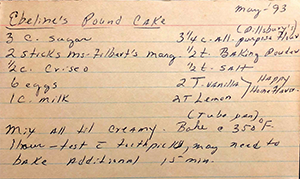 Ebeline's Pound Cake
May - '93
3 c. sugar
3 1/4 c. All-purpose Flour (Pillsbury's)
2 sticks Mrs. Filbert's marg.
1/2 t. Baking Powder
1/2 c. Crisco
1/2 t. salt
6 eggs
2 T. vanilla
1 c. milk
2 T Lemon
Happy Home Flavor
(Tube pan)
Mix all til creamy. Bake @ 350°F.
1 hour - test c̄ toothpicks, may need to
bake additional 15 min.